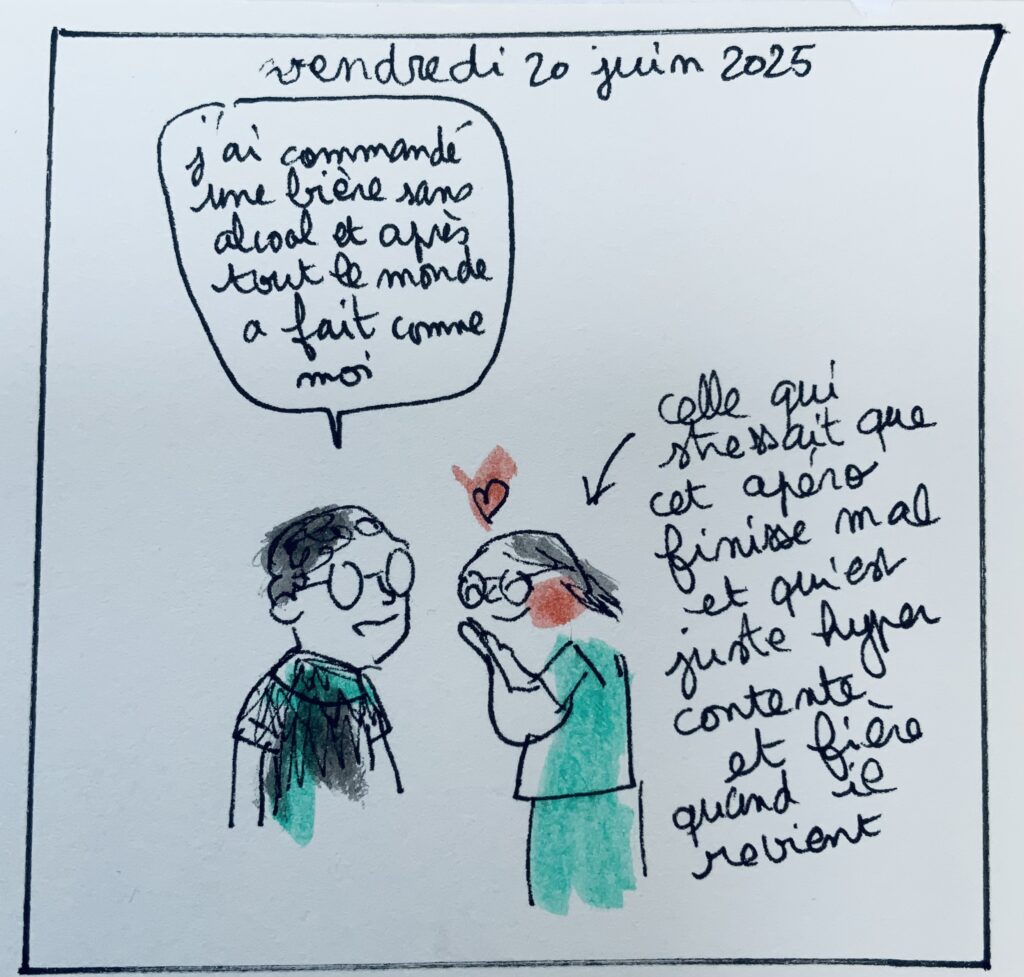 vendredi 20 juin 2025
j'ai commandé
une bière sans
alcool et après
tout le monde
a fait comme
moi
celle qui
stressait que
cet apéro
finisse mal
et qui est
juste hyper
contente
et fière
quand il
revient